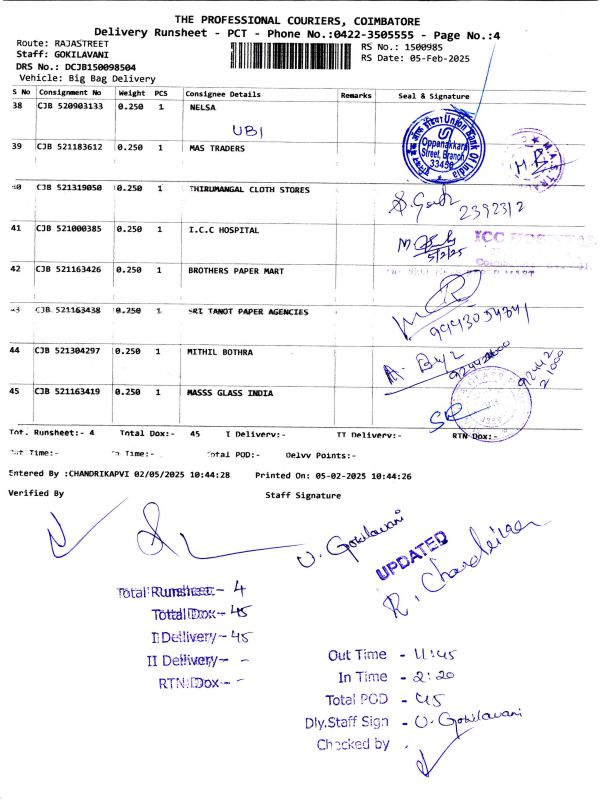 THE PROFESSIONAL COURIERS, COIMBATORE
Delivery Runsheet - PCT - Phone No.:0422-3505555 - Page No.:4
Route: RAJASTREET
Staff: GOKILAVANI
DRS No.: DCJB150098504
Vehicle: Big Bag Delivery
RS No.: 1500985
RS Date: 05-Feb-2025
S No Consignment No Weight PCS Consignee Details Remarks Seal & Signature
38 CJB 520903133 0.250 1 NELSA
UBI
Union Bank Of India
Oppanakkara
Street, Branch
39 CJB 521183612 0.250 1 MAS TRADERS
40 CJB 521319050 0.250 1 THIRUMANGAL CLOTH STORES
2392312
41 CJB 521000385 0.250 1 I.C.C HOSPITAL
5/2/25
ICC HOSPITAL
42 CJB 521163426 0.250 1 BROTHERS PAPER MART
43 CJB 521163438 0.250 1 SRI TANOT PAPER AGENCIES
44 CJB 521304297 0.250 1 MITHIL BOTHRA
92442
21000
45 CJB 521163419 0.250 1 MASSS GLASS INDIA
Tot. Runsheet:- 4 Total Dox:- 45 I Delivery:- II Delivery:- RTN Dox:-
Out Time:- In Time:- Total POD:- Delvv Points:-
Entered By :CHANDRIKAPVI 02/05/2025 10:44:28 Printed On: 05-02-2025 10:44:26
Verified By Staff Signature
U. Gokilavani
UPDATED
Total Runsheet - 4
Total Dox - 45
I Delivery - 45
II Delivery - -
RTN Dox - -
Out Time - 11:45
In Time - 2:20
Total POD - 45
Dly.Staff Sign - U. Gokilavani
Checked by